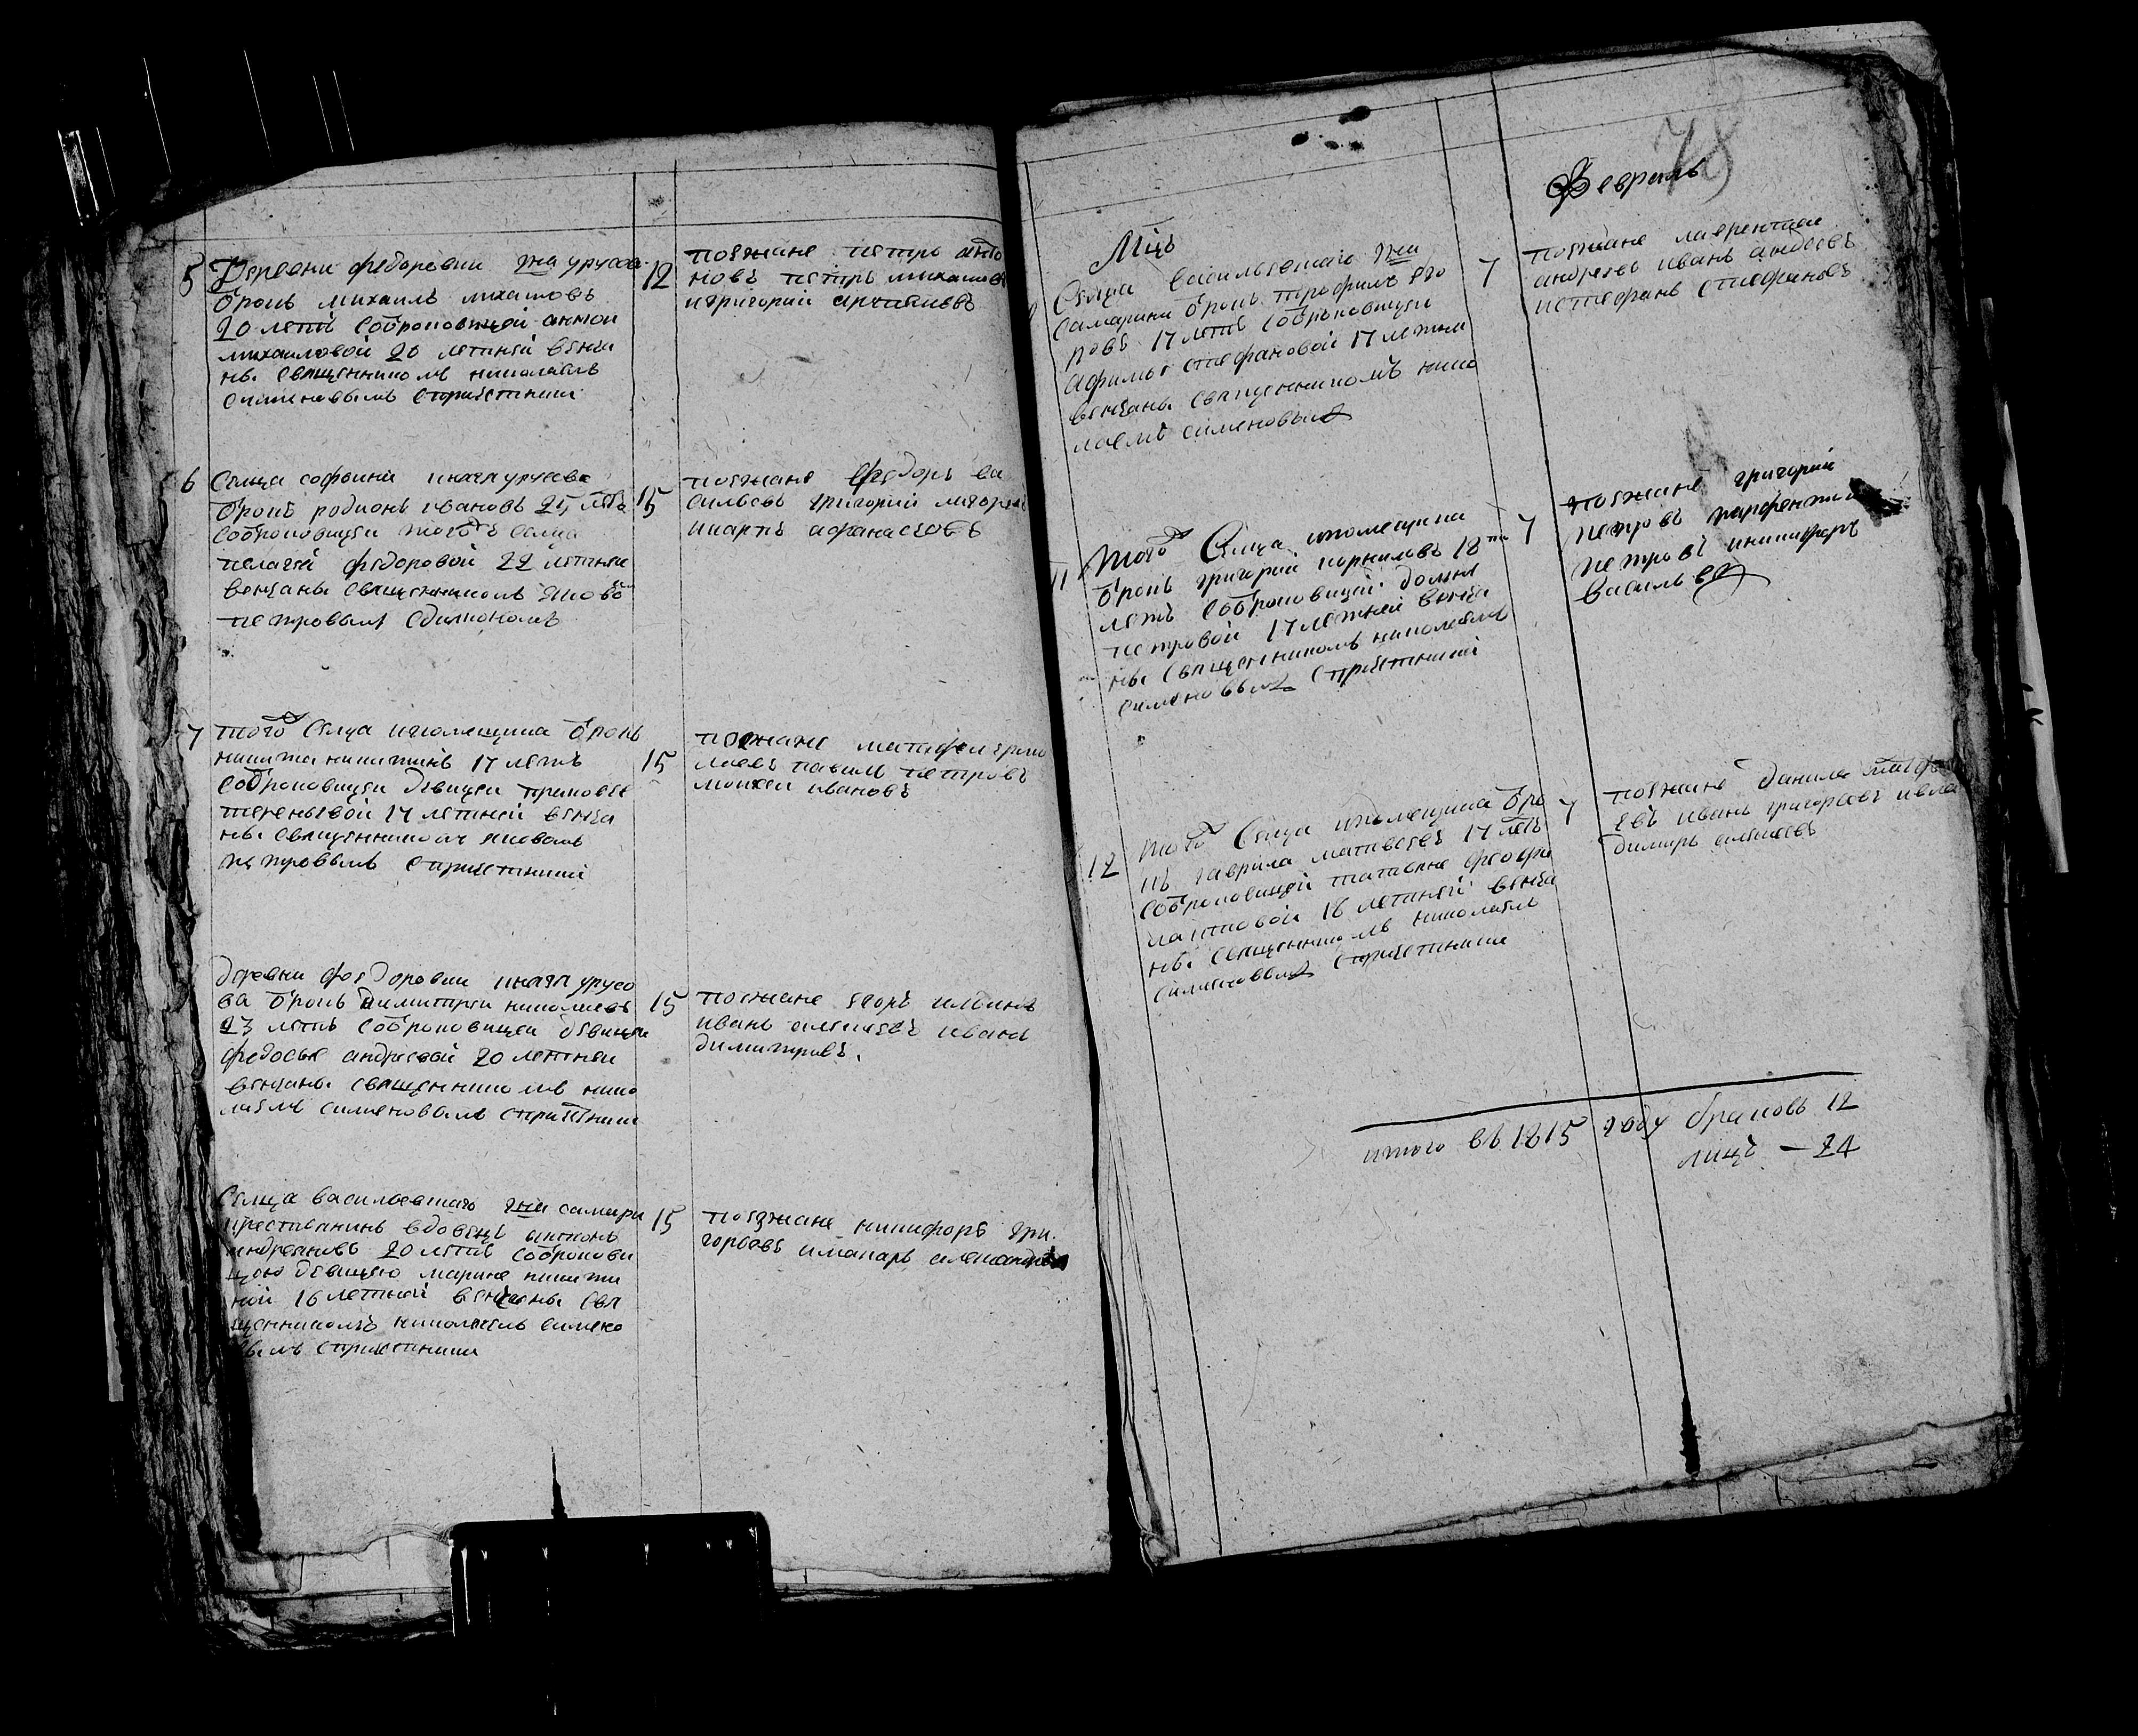 5 Деревни федоровки гна урусова
отрокъ михаилъ михаиловъ
20 летъ сотроковицей
михаиловой 20 летней венча
ны священникомъ николаемъ
сименовымъ спричетники
12
поезжане петръ анто
новъ петръ михаиловъ
игригорий
6 Селца софьина князя урусова
отрокъ родионъ ивановъ 25 летъ
сотроковицей тогожъ селца
пелагеи федоровой 22 летней
венчаны священникомъ яково
петровымъ сдиякономъ
15
поезжане федоръ ва
сильевъ григорий
икарпъ афанасьевъ
7 того Селца ипомещика отрокъ
никита никитинъ 17 летъ
сотроковицей девицей
терентьевой 17 летней венча
ны священникомъ яковомъ
петровымъ спричетники
15
поезжане матфеи ермо
лаевъ павелъ петровъ
моисеи ивановъ
деревни феодоровки князя урусо
ва отрокъ димитрей николаевъ
23 летъ сотроковицей девицеи
федосье андреевой 20 летнеи
венчаны священникомъ нико
лаемъ сименовымъ спричетники
15
поезжане егоръ
иванъ алексеевъ иванъ
димитревъ.
Селца васильевскаго гна самари
крестьянинъ вдовецъ антонъ
андреяновъ 20 летъ сотрокови
цею девицею марине никити
ной 16 летней венчены свя
щенникомъ николаемъ симено
вымъ спричетники
15
поезжане никифоръ гри
горьевъ имакаръ александровъ
78
Мцъ
Февраль
Селца васильевскаго гна
самарина отрокъ трофимъ его
ровъ 17 летъ сотроковицеи
афимьи стефановой 17 летней
венчаны священникомъ нико
лаемъ сименовымъ
7
поезжане лаврентий
андреевъ иванъ
истефанъ стефановъ
11 того Селца ипомещика
отрокъ григорий корниловъ 18ти
летъ сотроковицей
петровой 17 летней венча
ны священникомъ николаемъ
сименовымъ спричетники
7
поезжане григорий
петровъ парфентий
петровъ иникифоръ
васильевъ
12 того Селца ипомещика отро
къ гаврила матвеевъ 17 летъ
сотроковицей татьяне феофи
лактовой 16 летней венча
ны священникомъ николаемъ
сименовымъ спричетники
7
поезжане данила
евъ иванъ григорьевъ ивла
димиръ алексеевъ
итого въ 1815 году браковъ 12
лицъ — 24